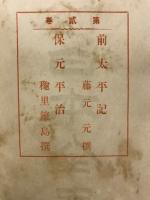 第貳卷
前太平記
藤元元撰
保元平治
穐里籬島撰